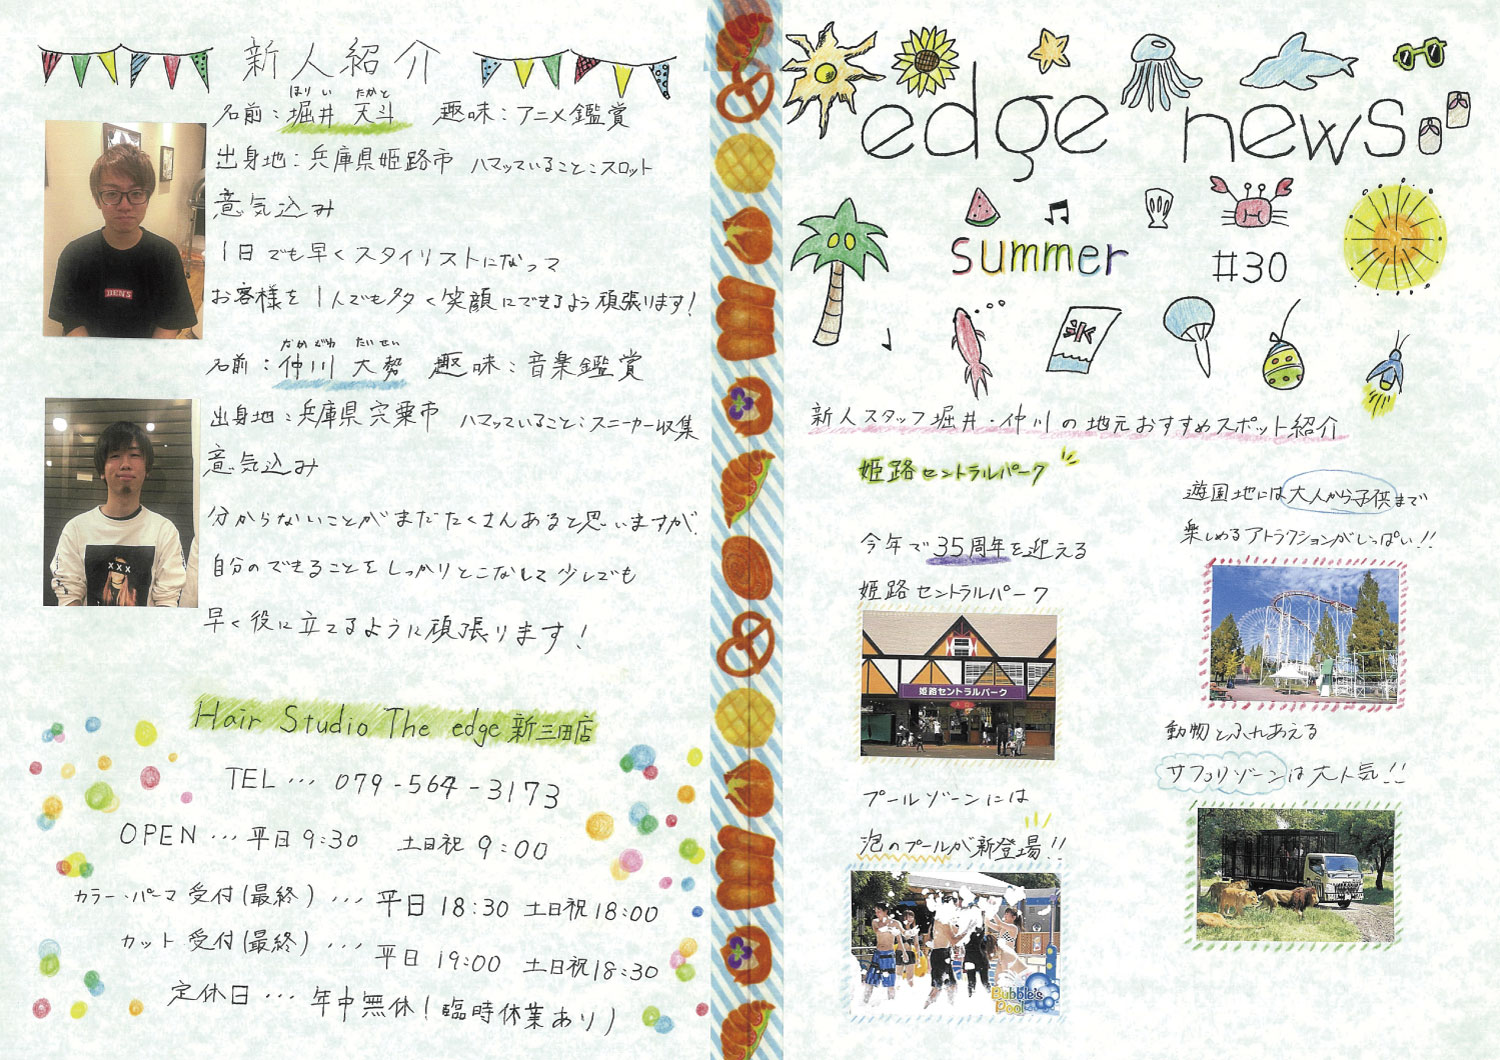 新人紹介
ほりい たかと
名前：堀井 天斗 趣味：アニメ鑑賞
出身地：兵庫県姫路市 ハマッていること：スロット
意気込み
1日でも早くスタイリストになって
お客様を1人でも多く笑顔にできるよう頑張ります！
なかがわ たいせい
名前：仲川 大勢 趣味：音楽鑑賞
出身地：兵庫県宍粟市 ハマッていること：スニーカー収集
意気込み
分からないことがまだたくさんあると思いますが、
自分のできることをしっかりとこなして少しでも
早く役に立てるように頑張ります！
Hair Studio The edge 新三田店
TEL … 079-564-3173
OPEN … 平日 9:30 土日祝 9:00
カラー・パーマ 受付(最終) … 平日 18:30 土日祝 18:00
カット 受付(最終) … 平日 19:00 土日祝 18:30
定休日 … 年中無休！臨時休業あり）
edge news
summer
#30
氷
新人スタッフ堀井・仲川の地元おすすめスポット紹介
姫路セントラルパーク
今年で35周年を迎える
姫路セントラルパーク
姫路セントラルパーク
プールゾーンには
泡のプールが新登場!!
Bubble's
Pool
遊園地には大人から子供まで
楽しめるアトラクションがいっぱい!!
動物とふれあえる
サファリゾーンは大人気!!